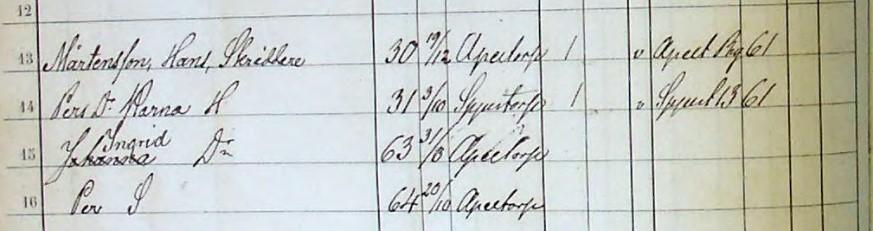 12
13 Mårtensson, Hans, Skräddare 30 19/12 Apeltorp 1 " Apelt 61
14 Pers Dr Karna H 31 3/10 Spjutstorp 1 " Spjut 13 61
15 Johanna Ingrid Dr 63 31/8 Apeltorp
16 Per S 64 20/10 Apeltorp